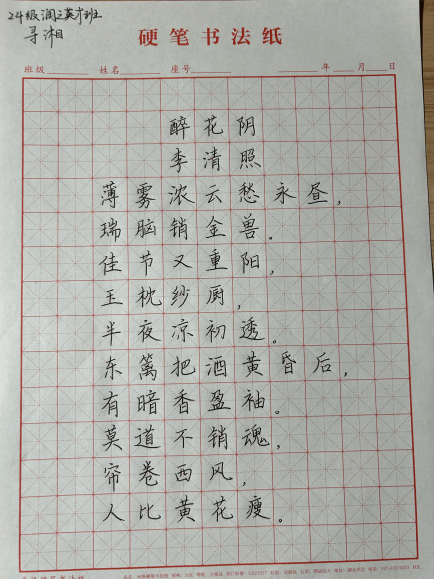 24级润之英才班
寻湘
硬笔书法纸
班级 姓名 座号 年 月 日
醉花阴
李清照
薄雾浓云愁永昼，
瑞脑销金兽。
佳节又重阳，
玉枕纱厨，
半夜凉初透。
东篱把酒黄昏后，
有暗香盈袖。
莫道不销魂，
帘卷西风，
人比黄花瘦。